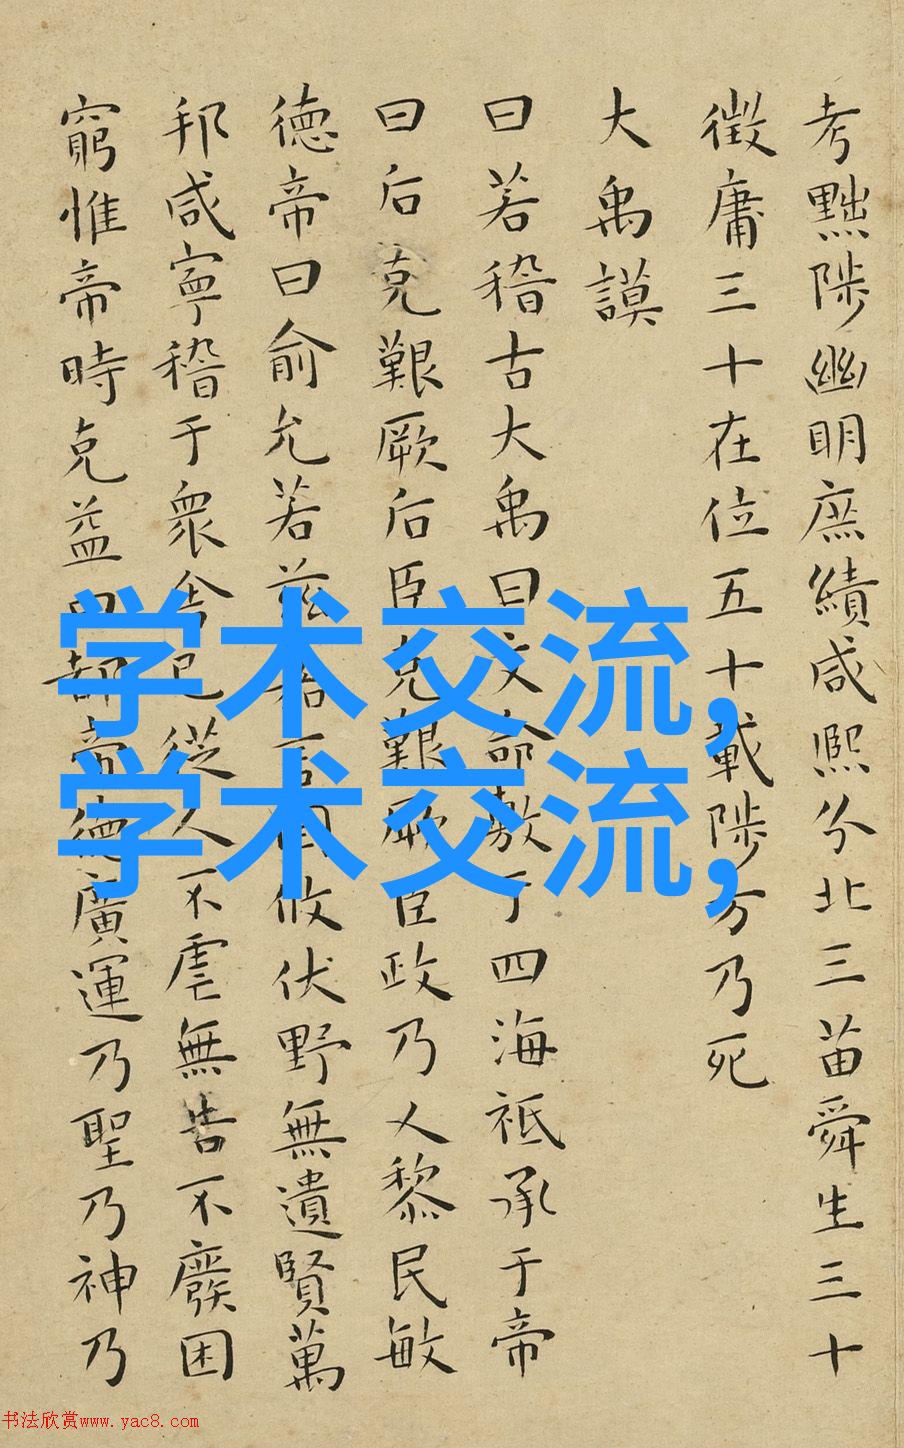 考黜陟幽明庶績咸熙分北三苗舜生三十
徵庸三十在位五十載陟方乃死
大禹謨
曰若稽古大禹曰文命敷于四海祗承于帝
曰后克艱厥后臣克艱厥臣政乃乂黎民敏
德帝曰俞允若茲 言 攸伏野無遺賢萬
邦咸寧稽于衆舍己從人不虐無告不廢困
窮惟帝時克益曰都帝德廣運乃聖乃神乃
学术交流,
学术交流,
书法欣赏www.yac8.com